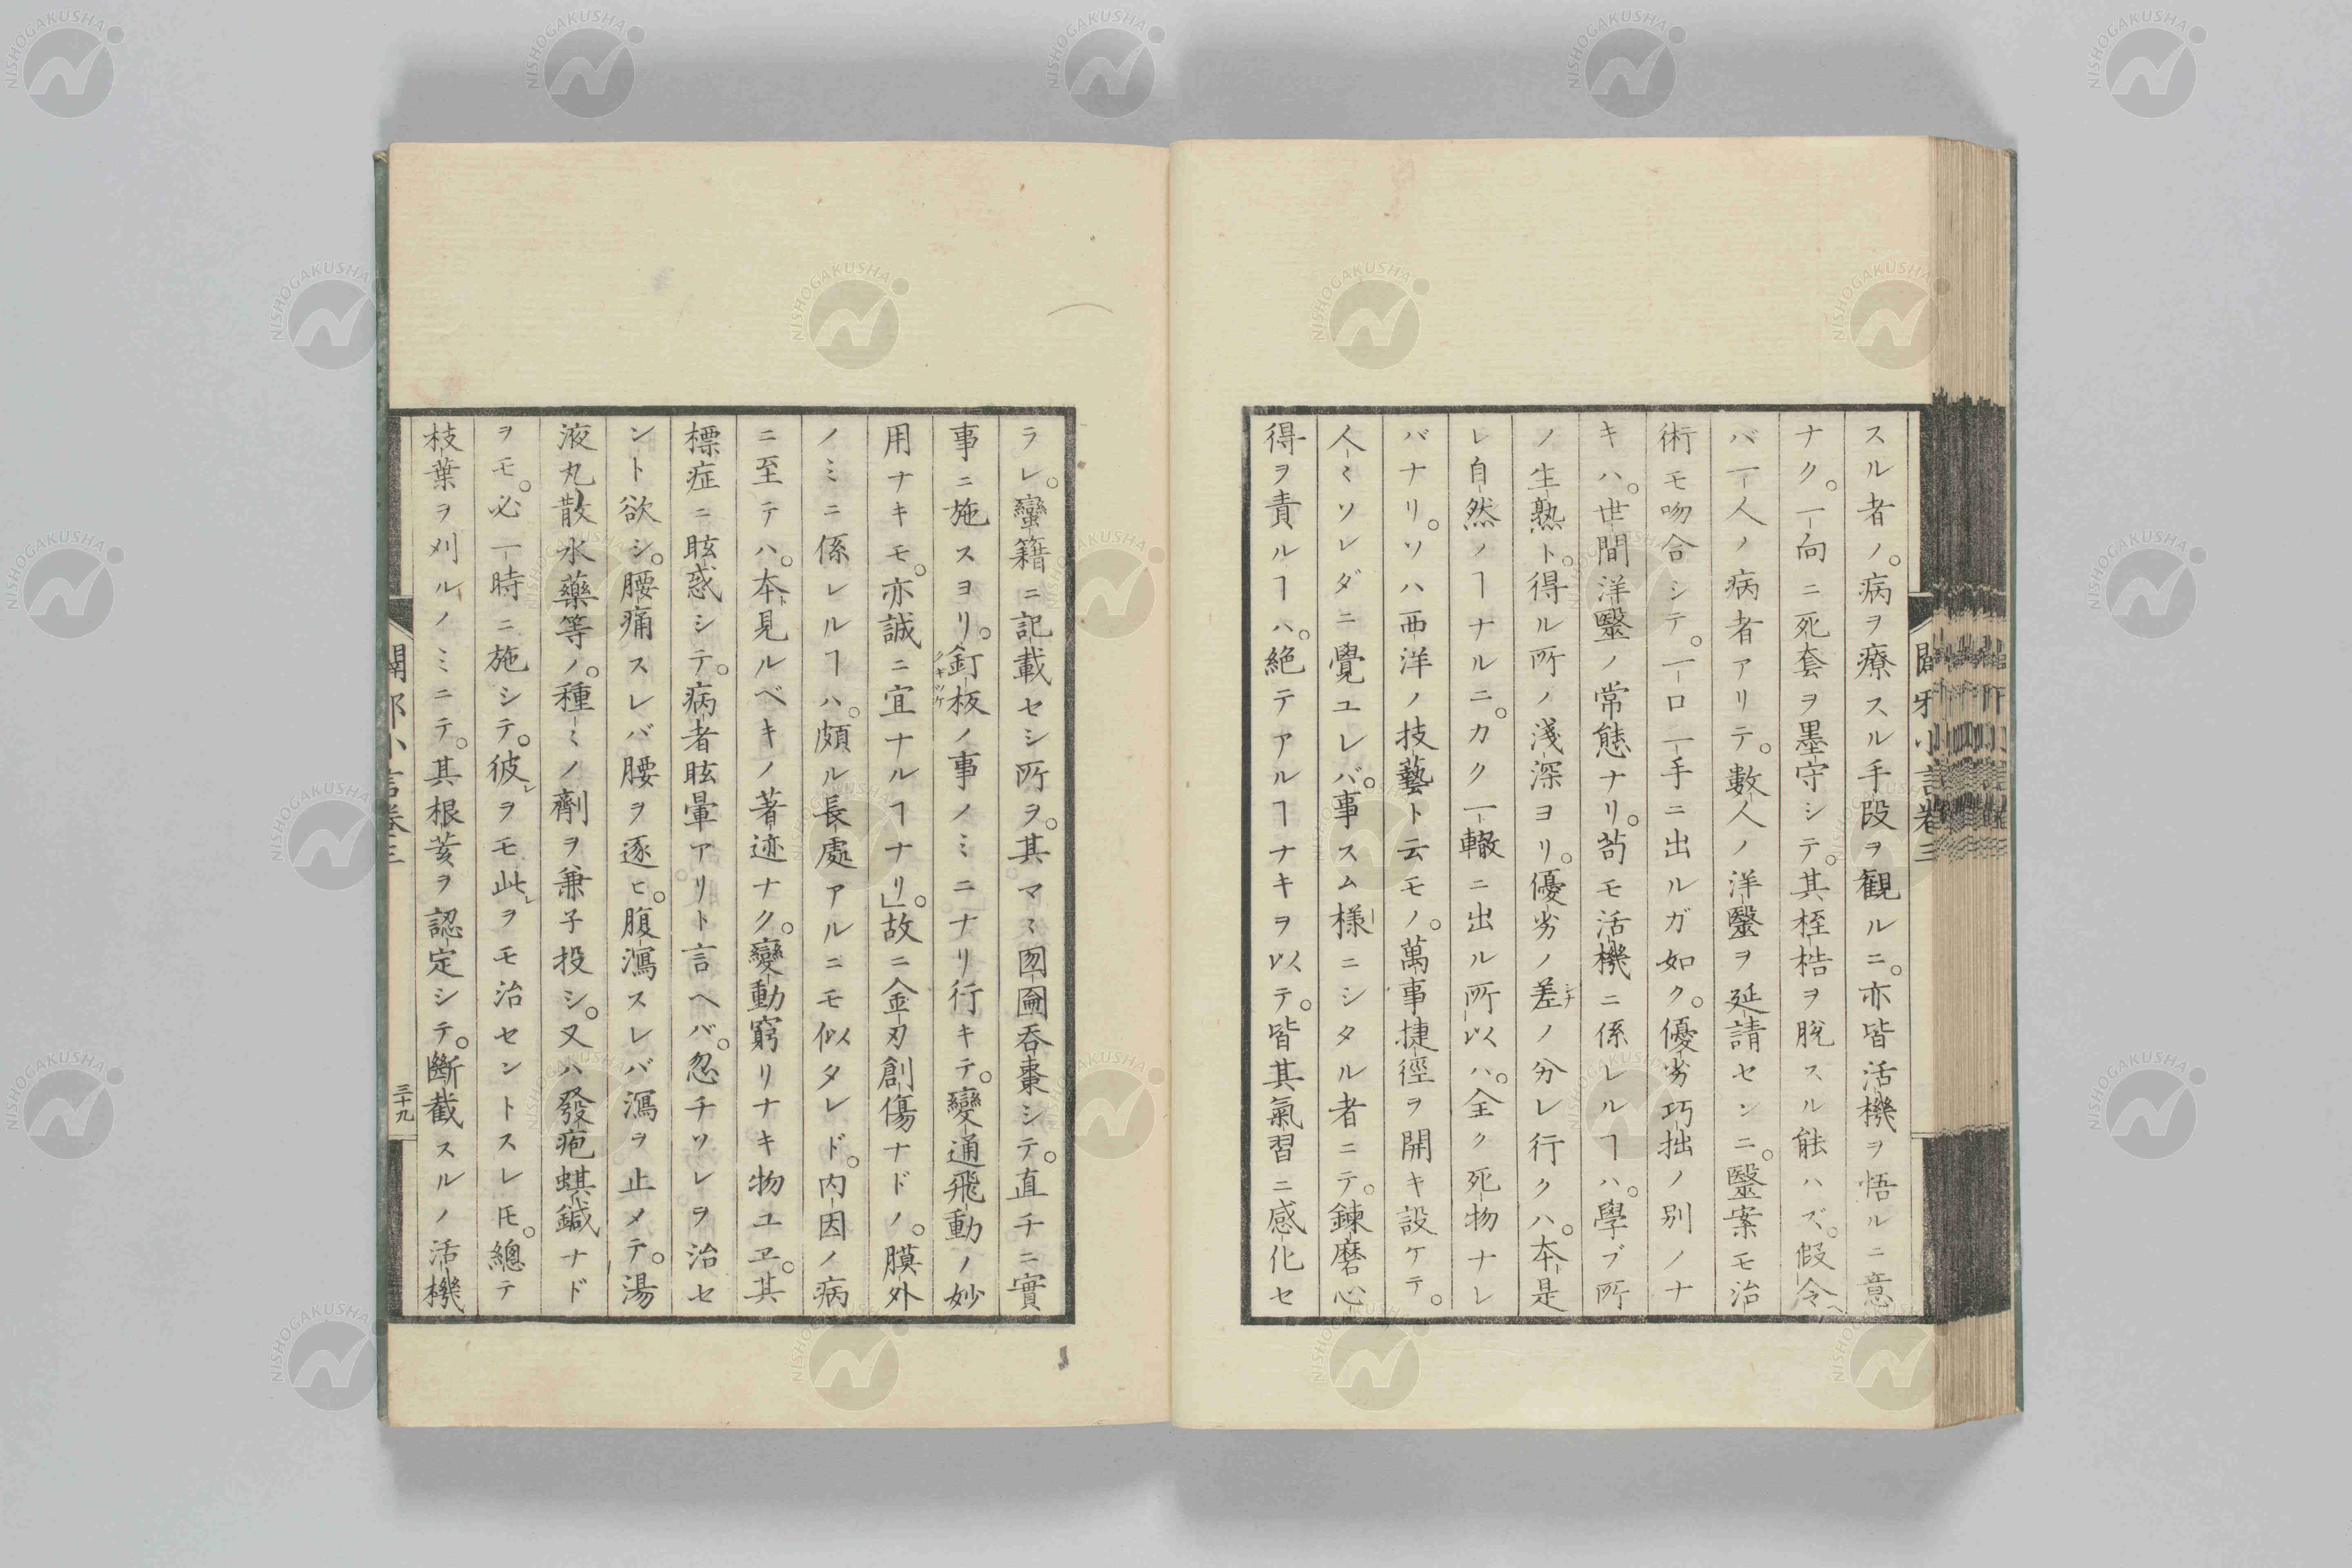 スル者ノ。病ヲ療スル手段ヲ観ルニ。亦皆活機ヲ悟ルニ意
ナク。一向ニ死套ヲ墨守シテ。其桎梏ヲ脱スル能ハズ。假令ヘ
バ一人ノ病者アリテ。數人ノ洋毉ヲ延請センニ。毉案モ治
術モ吻合シテ。一口一手ニ出ルガ如ク。優劣巧拙ノ別ノナ
キハ。世間洋毉ノ常態ナリ。苟モ活機ニ係レルヿハ。學ブ所
ノ生熟ト。得ル所ノ淺深ヨリ。優劣ノ差シナノ分レ行クハ。本是
レ自然ノヿナルニ。カク一轍ニ出ル所以ハ。全ク死物ナレ
バナリ。ソハ西洋ノ技藝ト云モノ。萬事捷徑ヲ開キ設ケテ。
人ミソレダニ覺ユレバ。事スム様ニシタル者ニテ。鍊磨心
得ヲ責ルヿハ。絶テアルヿナキヲ以テ。皆其氣習ニ感化セ
闢邪小言卷三
ラレ。蠻籍ニ記載セシ所ヲ。其マミ囫圇呑棗シテ。直チニ實
事ニ施スヨリ。釘板クキツケノ事ノミニナリ行キテ。變通飛動ノ妙
用ナキモ。亦誠ニ宜ナルヿナリ」。故ニ金刃創傷ナドノ。膜外
ノミニ係レルヿハ。頗ル長處アルニモ似タレド。内因ノ病
ニ至テハ。本ト見ルベキノ著迹ナク。變動窮リナキ物ユヱ。其
標症ニ眩惑シテ。病者眩暈アリト言ヘバ。忽チソレヲ治セ
ント欲シ。腰痛スレバ腰ヲ逐ヒ。腹瀉スレバ瀉ヲ止メテ。湯
液丸散水藥等ノ。種ミノ劑ヲ兼子投シ。又ハ發疱蜞鍼ナド
ヲモ。必一時ニ施シテ。彼レヲモ此レヲモ治セントスレ𪜈。總テ
枝葉ヲ刈ルノミニテ。其根荄ヲ認定シテ。斷截スルノ活機
闢邪小言卷三
三十九